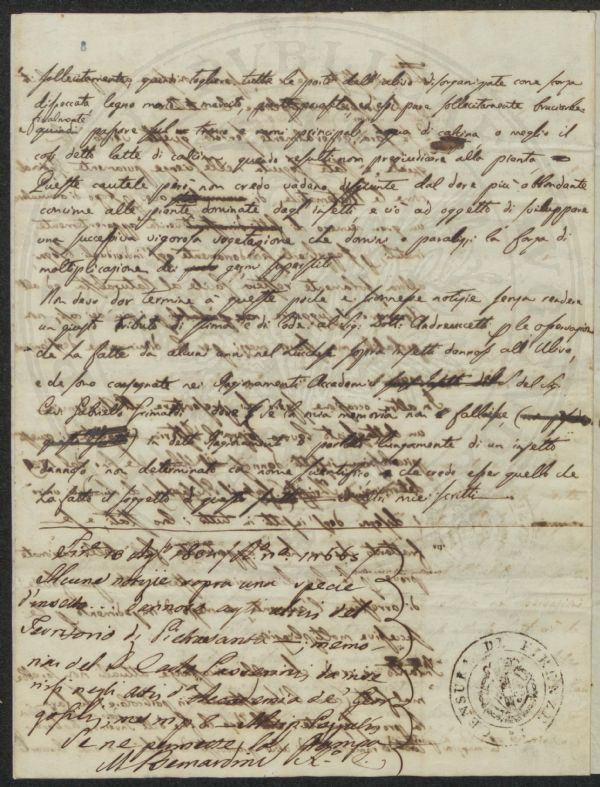 sollecitamente, quindi togliere tutte le parti dell'ulivo disorganizzate come scorza
distaccata legno morto e marcato, ed esse pure sollecitamente bruciarle
finalmente
e quindi passare sul tronco e rami principali acqua di calcina o meglio il
così detto latte di calcina quando resulti non pregiudicare alla pianta
Queste cautele però non credo vadano disgiunte dal dare più abbondante
concime alle piante dominate dagl'insetti e ciò ad oggetto di sviluppare
una successiva vigorosa vegetazione che domini o paralizzi la forza di
moltiplicazione dei germi superstiti
Non devo dar termine a queste poche e notizie senza rendere
un giusto tributo di stima e di lode al Sig. Dott. Andreuccetti per le osservazioni
che ha fatte da alcuni anni nel Lucchese sopra insetti dannosi all'Ulivo,
e che sono consegnate nei Ragionamenti Accademici del Sig.
Cesi Gabriello Grimaldi dove se la mia memoria non è fallace,
in detti Ragionamenti si parla lungamente di un insetto
dannoso, non determinato con nome scientifico e che credo esser quello che
ha fatto il soggetto di questo ed altri miei scritti
N. 11665
Alcune notizie sopra una specie
d'insetto dannosa agli ulivi del
Territorio di Pietrasanta memo
ria del D. Carlo Passerini da inse
rirsi negli Atti dell'Accademia de' Geor
gofili
Se ne permette la stampa
M. Bernardini
CENSURA DI FIRENZE